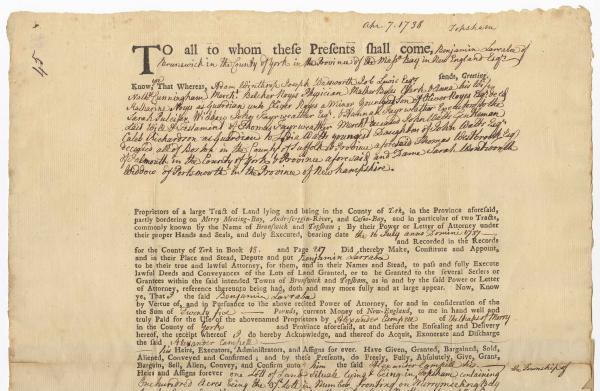 Apr. 7. 1738 Topsham
45
TO all to whom these Presents shall come, Benjamin Larraba of
Brunswick in the County of York in the Province of the Massa Bay in New England Esqr
sends, Greeting.
Know ye That Whereas, Adam Winthrop Joseph Wadsworth Job Lewis Esqrs
Nathl Cunningham Mercht Belcher Noyes Physician
Katharine Noyes as Guardian unto Oliver Noyes a Minor Son of Oliver Noyes Esqr
Sarah Hannah Fayerweather
last Will & Testament of Thomas Fayerweather Mercht deceased John Watts Gentleman
Caleb Richardson as Guardian to Watts youngest Daughter of John Watts Esqr
deceased all of Boston in the County of Suffolk & Province aforesaid Thomas Westbrook Esqr
of Falmouth in the County of York & Province aforesaid and Dame Sarah Wentworth
Widdow of Portsmouth in the Province of New hampshire.
Proprietors of a large Tract of Land lying and being in the County of York, in the Province aforesaid,
partly bordering on Merry Meeting-Bay, Androscoggin-River, and Casco-Bay, and in particular of two Tracts,
commonly known by the Name of Brunswick and Topsham: By their Power or Letter of Attorney under
their proper Hands and Seals, and duly Executed, bearing date the 16 July anno Domini 1737
and Recorded in the Records
for the County of York in Book 18. and Page 267 Did, thereby Make, Constitute and Appoint,
and in their Place and Stead, Depute and put Benjamin Larraba
to be their true and lawful Attorney, for them, and in their Names and Stead, to pass and fully Execute
lawful Deeds and Conveyances of the Lots of Land Granted, or to be Granted to the several Setlers or
Grantees within the said intended Towns of Brunswick and Topsham, as in and by the said Power or Letter
of Attorney, reference thereunto being had, doth and may more fully and at large appear. Now, Know
ye, That I the said Benjamin Larraba
by Virtue of, and in Pursuance to the above recited Power of Attorney, for and in consideration of the
Sum of Twenty five Pounds, current Money of New-England, to me in hand well and
truly Paid for the Use of the abovenamed Proprietors by Alexander Campbell of
in the County of York and Province aforesaid, at and before the Ensealing and Delivery
hereof, the receipt whereof I do hereby Acknowledge, and thereof do Acquit, Exonerate and Discharge
the said Alexander Campbell
his Heirs, Executors, Administrators, and Assigns for ever. Have Given, Granted, Bargained, Sold,
Aliened, Conveyed and Confirmed; and by these Presents, do Freely, Fully, Absolutely, Give, Grant,
Bargain, Sell, Alien, Convey, and Confirm unto him the said Alexander Campbell his
Heirs and Assigns forever one Lott of Land Situate lying & being in the Township of Topsham containing
One hundred Acres being the Lott in Number fronting on Merrymeeting Bay